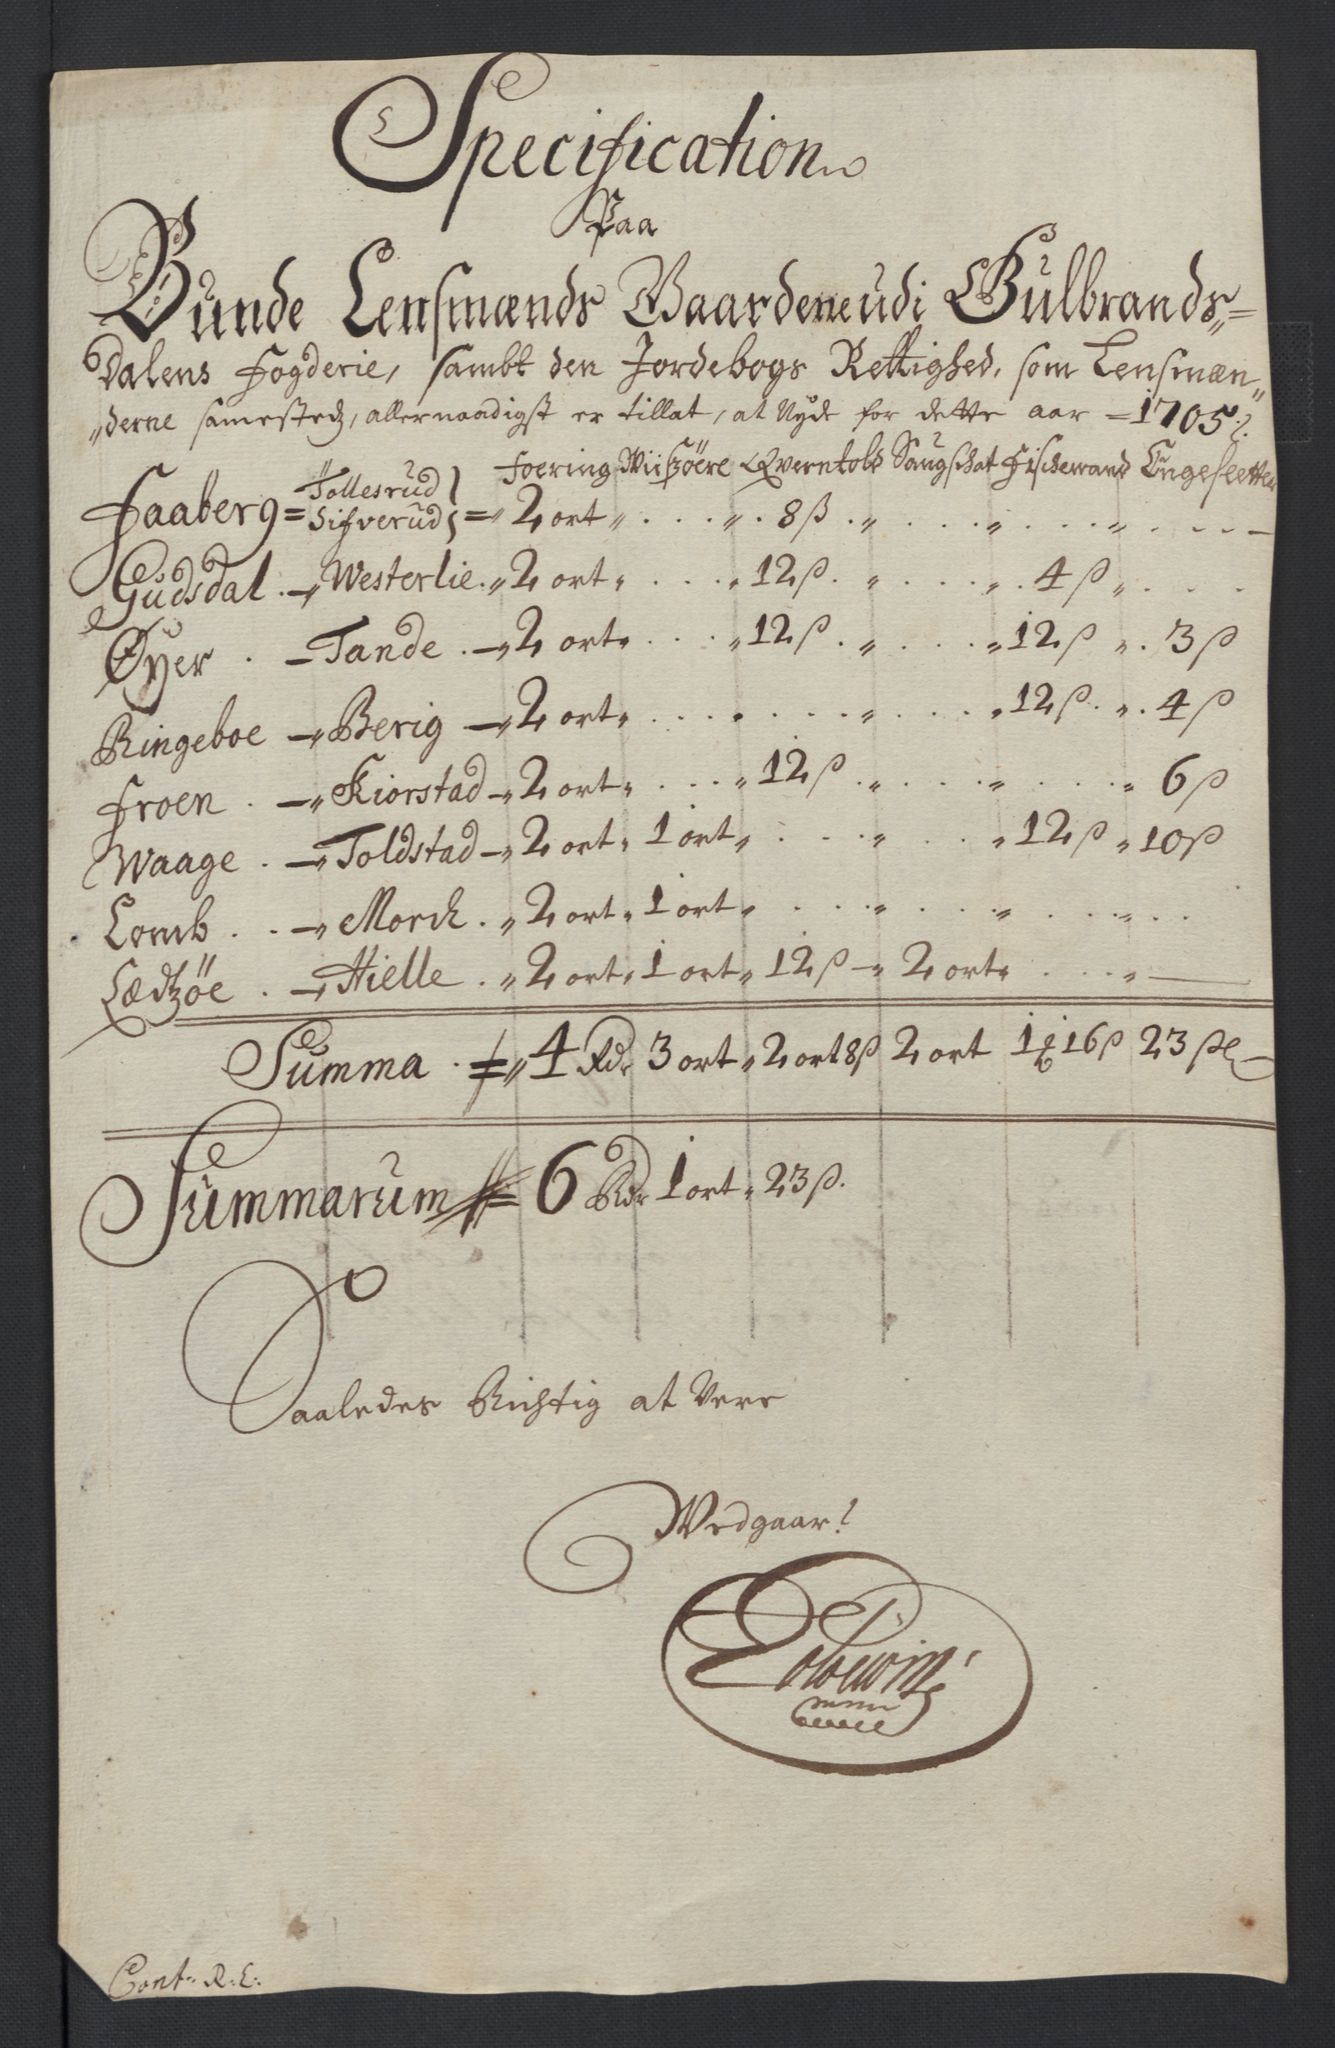 Specification
Paa
Bunde Lensmænds Gaardene udi Gulbrands-
dalens Fogderie, sambt den Jordebogs Rettighed, som Lensmæn-
derne samestedz, allernaadigst er tillat, at Nyde for dette aar = 1705.
Foering Wiisøere Qverntold Saugschat Fischevand Engesletter
Faaberg = Tollesrud Sifverud = 2 ort 8 ß
Gudsdal Westerlie 2 ort 12 ß 4 ß
Øyer Tande 2 ort 12 ß 12 ß 3 ß
Ringeboe Berig 2 ort 12 ß 4 ß
Froen Kiorstad 2 ort 12 ß 6 ß
Waage Toldstad 2 ort 1 ort 12 ß 10 ß
Lomb Morch 2 ort 1 ort
Lædtzöe Hielle 2 ort 1 ort 12 ß 2 ort
Summa 4 Rdr 3 ort 2 ort 8 ß 2 ort 1 ℔ 16 ß 23 ß
Summarum 6 Rdr 1 ort 23 ß.
Saaledes Richtig at Vere
Vedgaar
Cont: R: E: